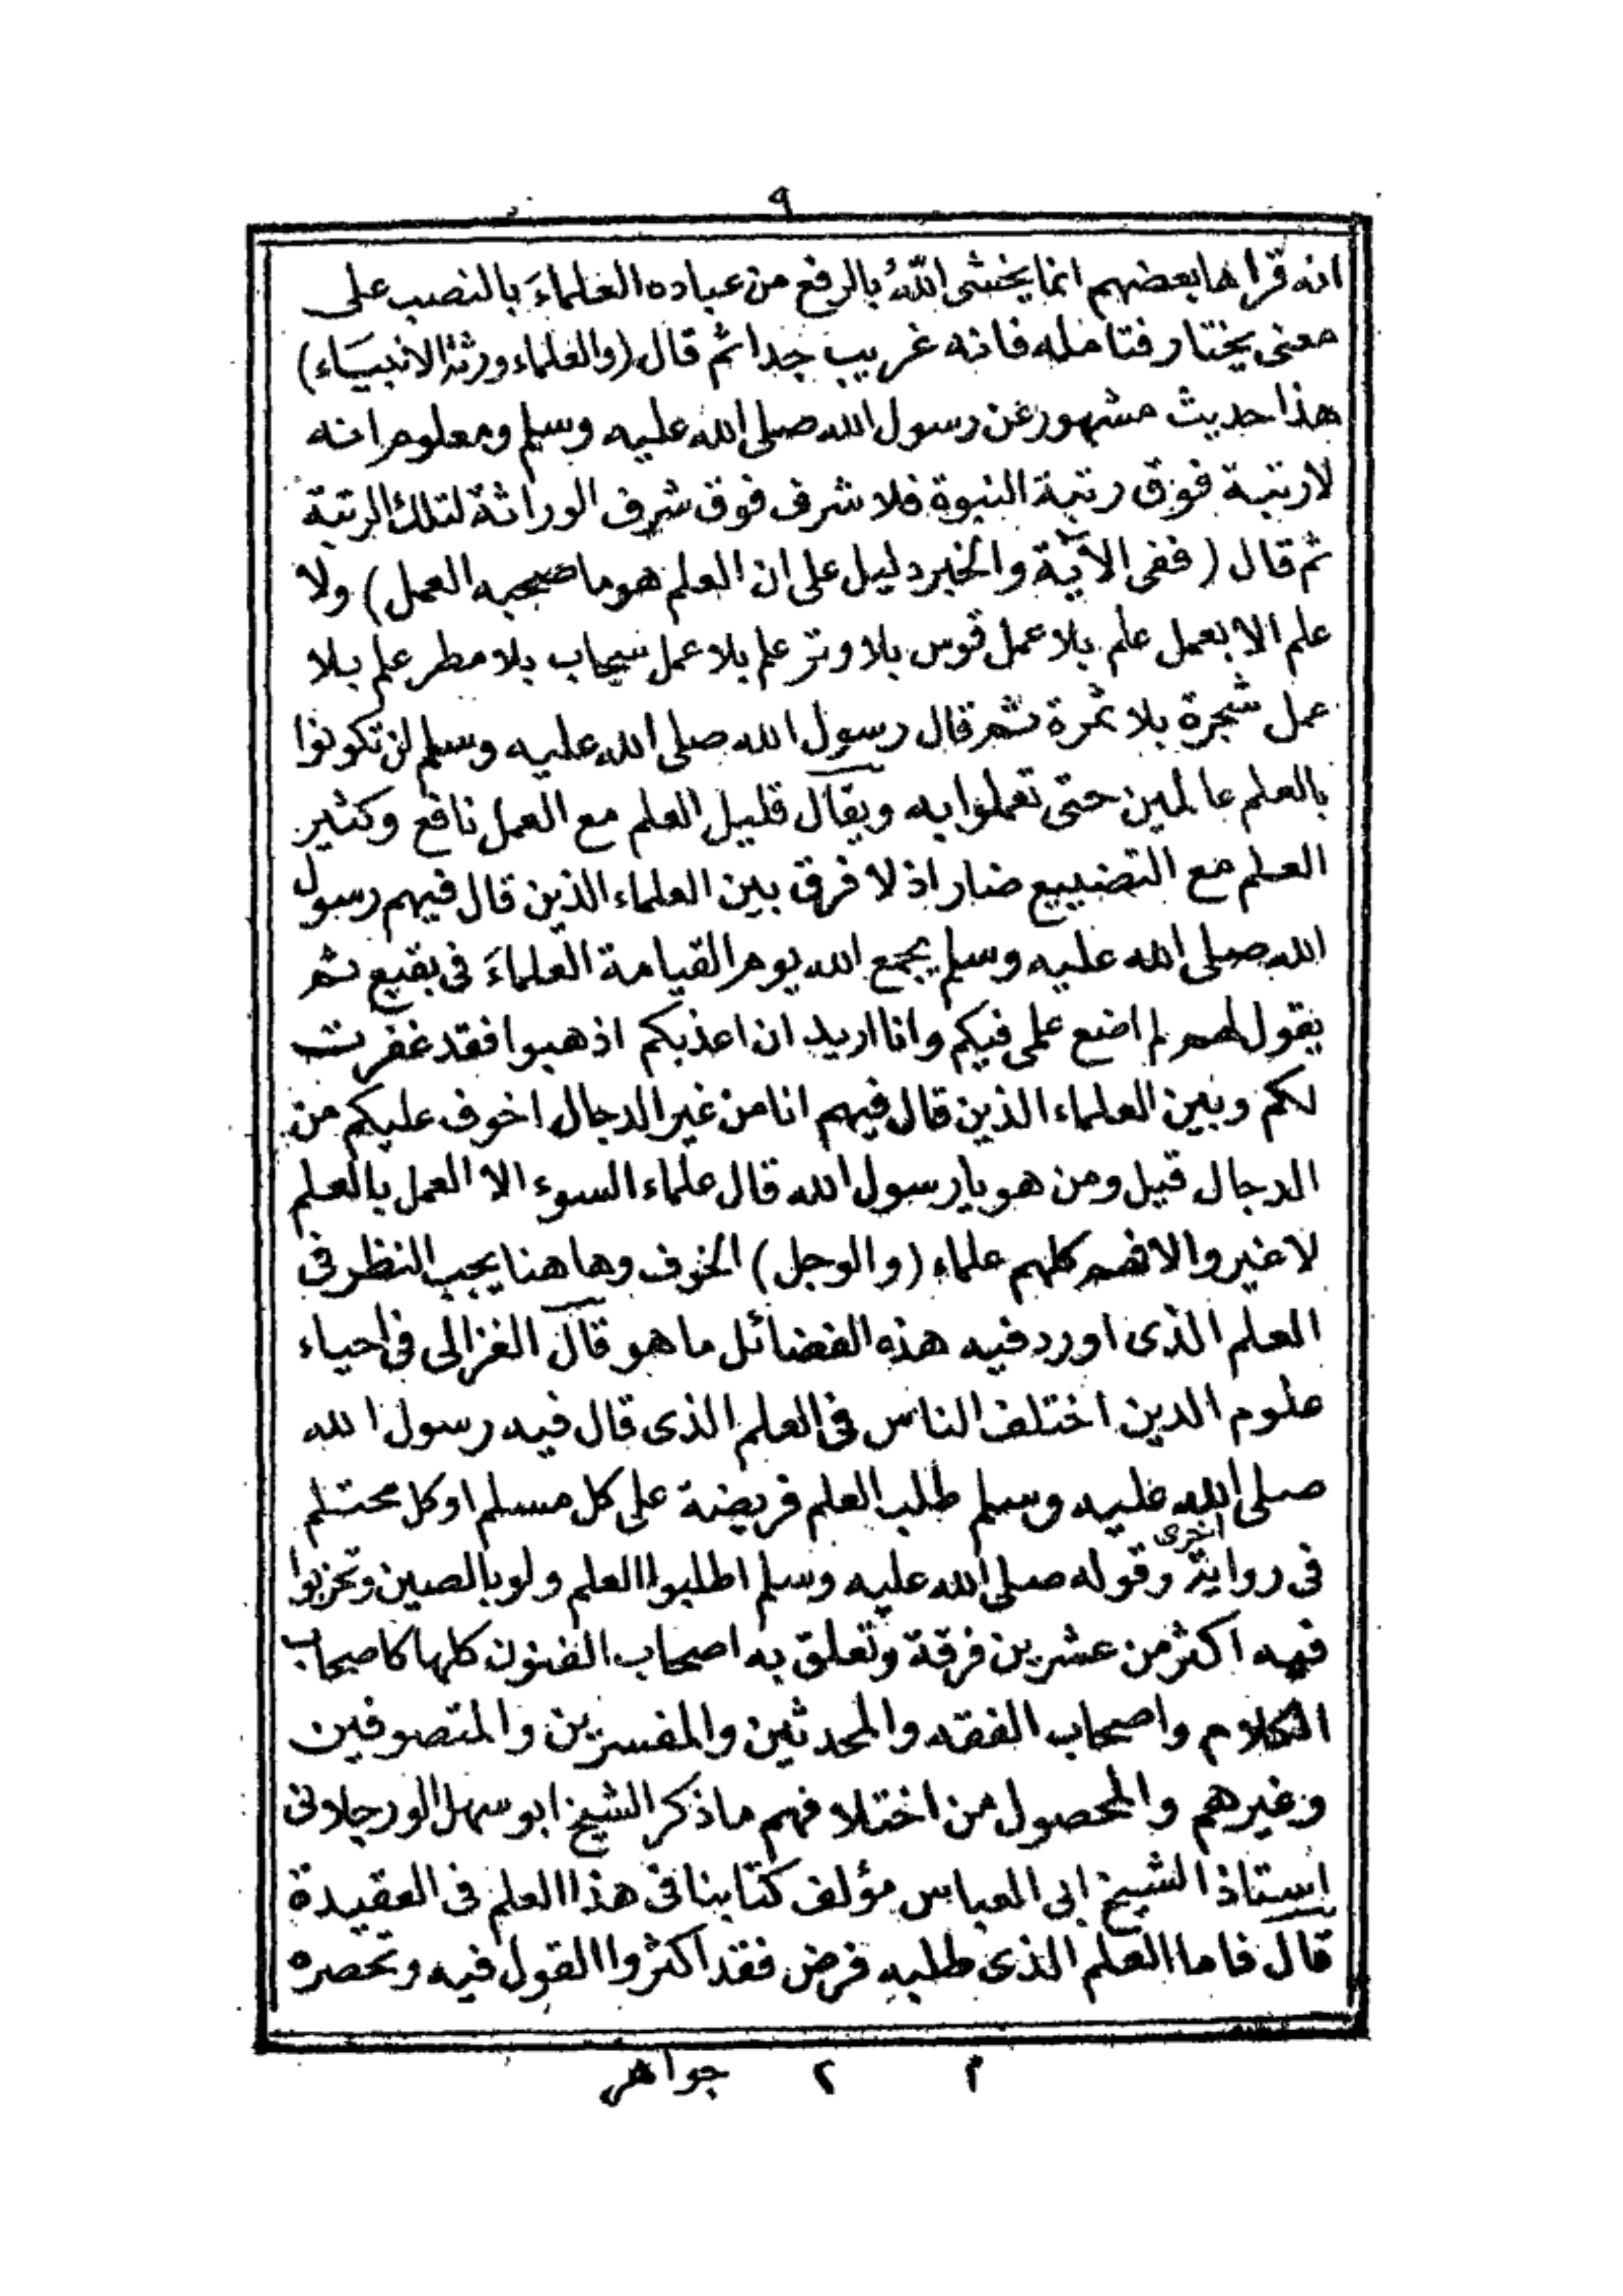 ٩
انه قراها بعضهم انما يخشى اللهُ بالرفع من عباده العلماءَ بالنصب على
معنى يختار فتامله فانه غريب جدا ثم قال (والعلماء ورثة الانبياء)
هذا حديث مشهور عن رسول الله صلى الله عليه وسلم ومعلوم انه
لارتبة فوق رتبة النبوة فلا شرف فوق شرف الوراثة لتلك الرتبة
ثم قال (ففى الآية والخبر دليل على ان العلم هو ما صحبه العمل) ولا
علم الا بعمل علم بلا عمل قوس بلا وتر علم بلا عمل سحاب بلا مطر علم بلا
عمل شجرة بلا ثمرة ثم قال رسول الله صلى الله عليه وسلم لن تكونوا
بالعلم عالمين حتى تعملوا به ويقال قليل العلم مع العمل نافع وكثير
العلم مع التضييع ضار اذ لا فرق بين العلماء الذين قال فيهم رسول
الله صلى الله عليه وسلم يجمع الله يوم القيامة العلماءَ فى بقيع ثم
يقول لهم لم اضع علمى فيكم وانا اريد ان اعذبكم اذهبوا فقد غفرت
لكم وبين العلماء الذين قال فيهم انا من غير الدجال اخوف عليكم من
الدجال قيل ومن هو يا رسول الله قال علماء السوء الا العمل بالعلم
لا غير والا فهم كلهم علماء (والوجل) الخوف وهاهنا يجب النظر فى
العلم الذى اورد فيه هذه الفضائل ما هو قال الغزالى فى احياء
علوم الدين اختلف الناس فى العلم الذى قال فيه رسول الله
صلى الله عليه وسلم طلب العلم فريضة على كل مسلم او كل محتلم
فى رواية اخرى وقوله صلى الله عليه وسلم اطلبوا العلم ولو بالصين وتحزبوا
فيه اكثر من عشرين فرقة وتعلق به اصحاب الفنون كلها كاصحاب
الكلام واصحاب الفقه والمحدثين والمفسرين والمتصوفين
وغيرهم والمحصول من اختلافهم ما ذكر الشيخ ابو سهل الورجلانى
استاذ الشيخ ابى العباس مؤلف كتابنا فى هذا العلم فى العقيدة
قال فاما العلم الذى طلبه فرض فقد اكثروا القول فيه وتحصره
م ٢ جواهر